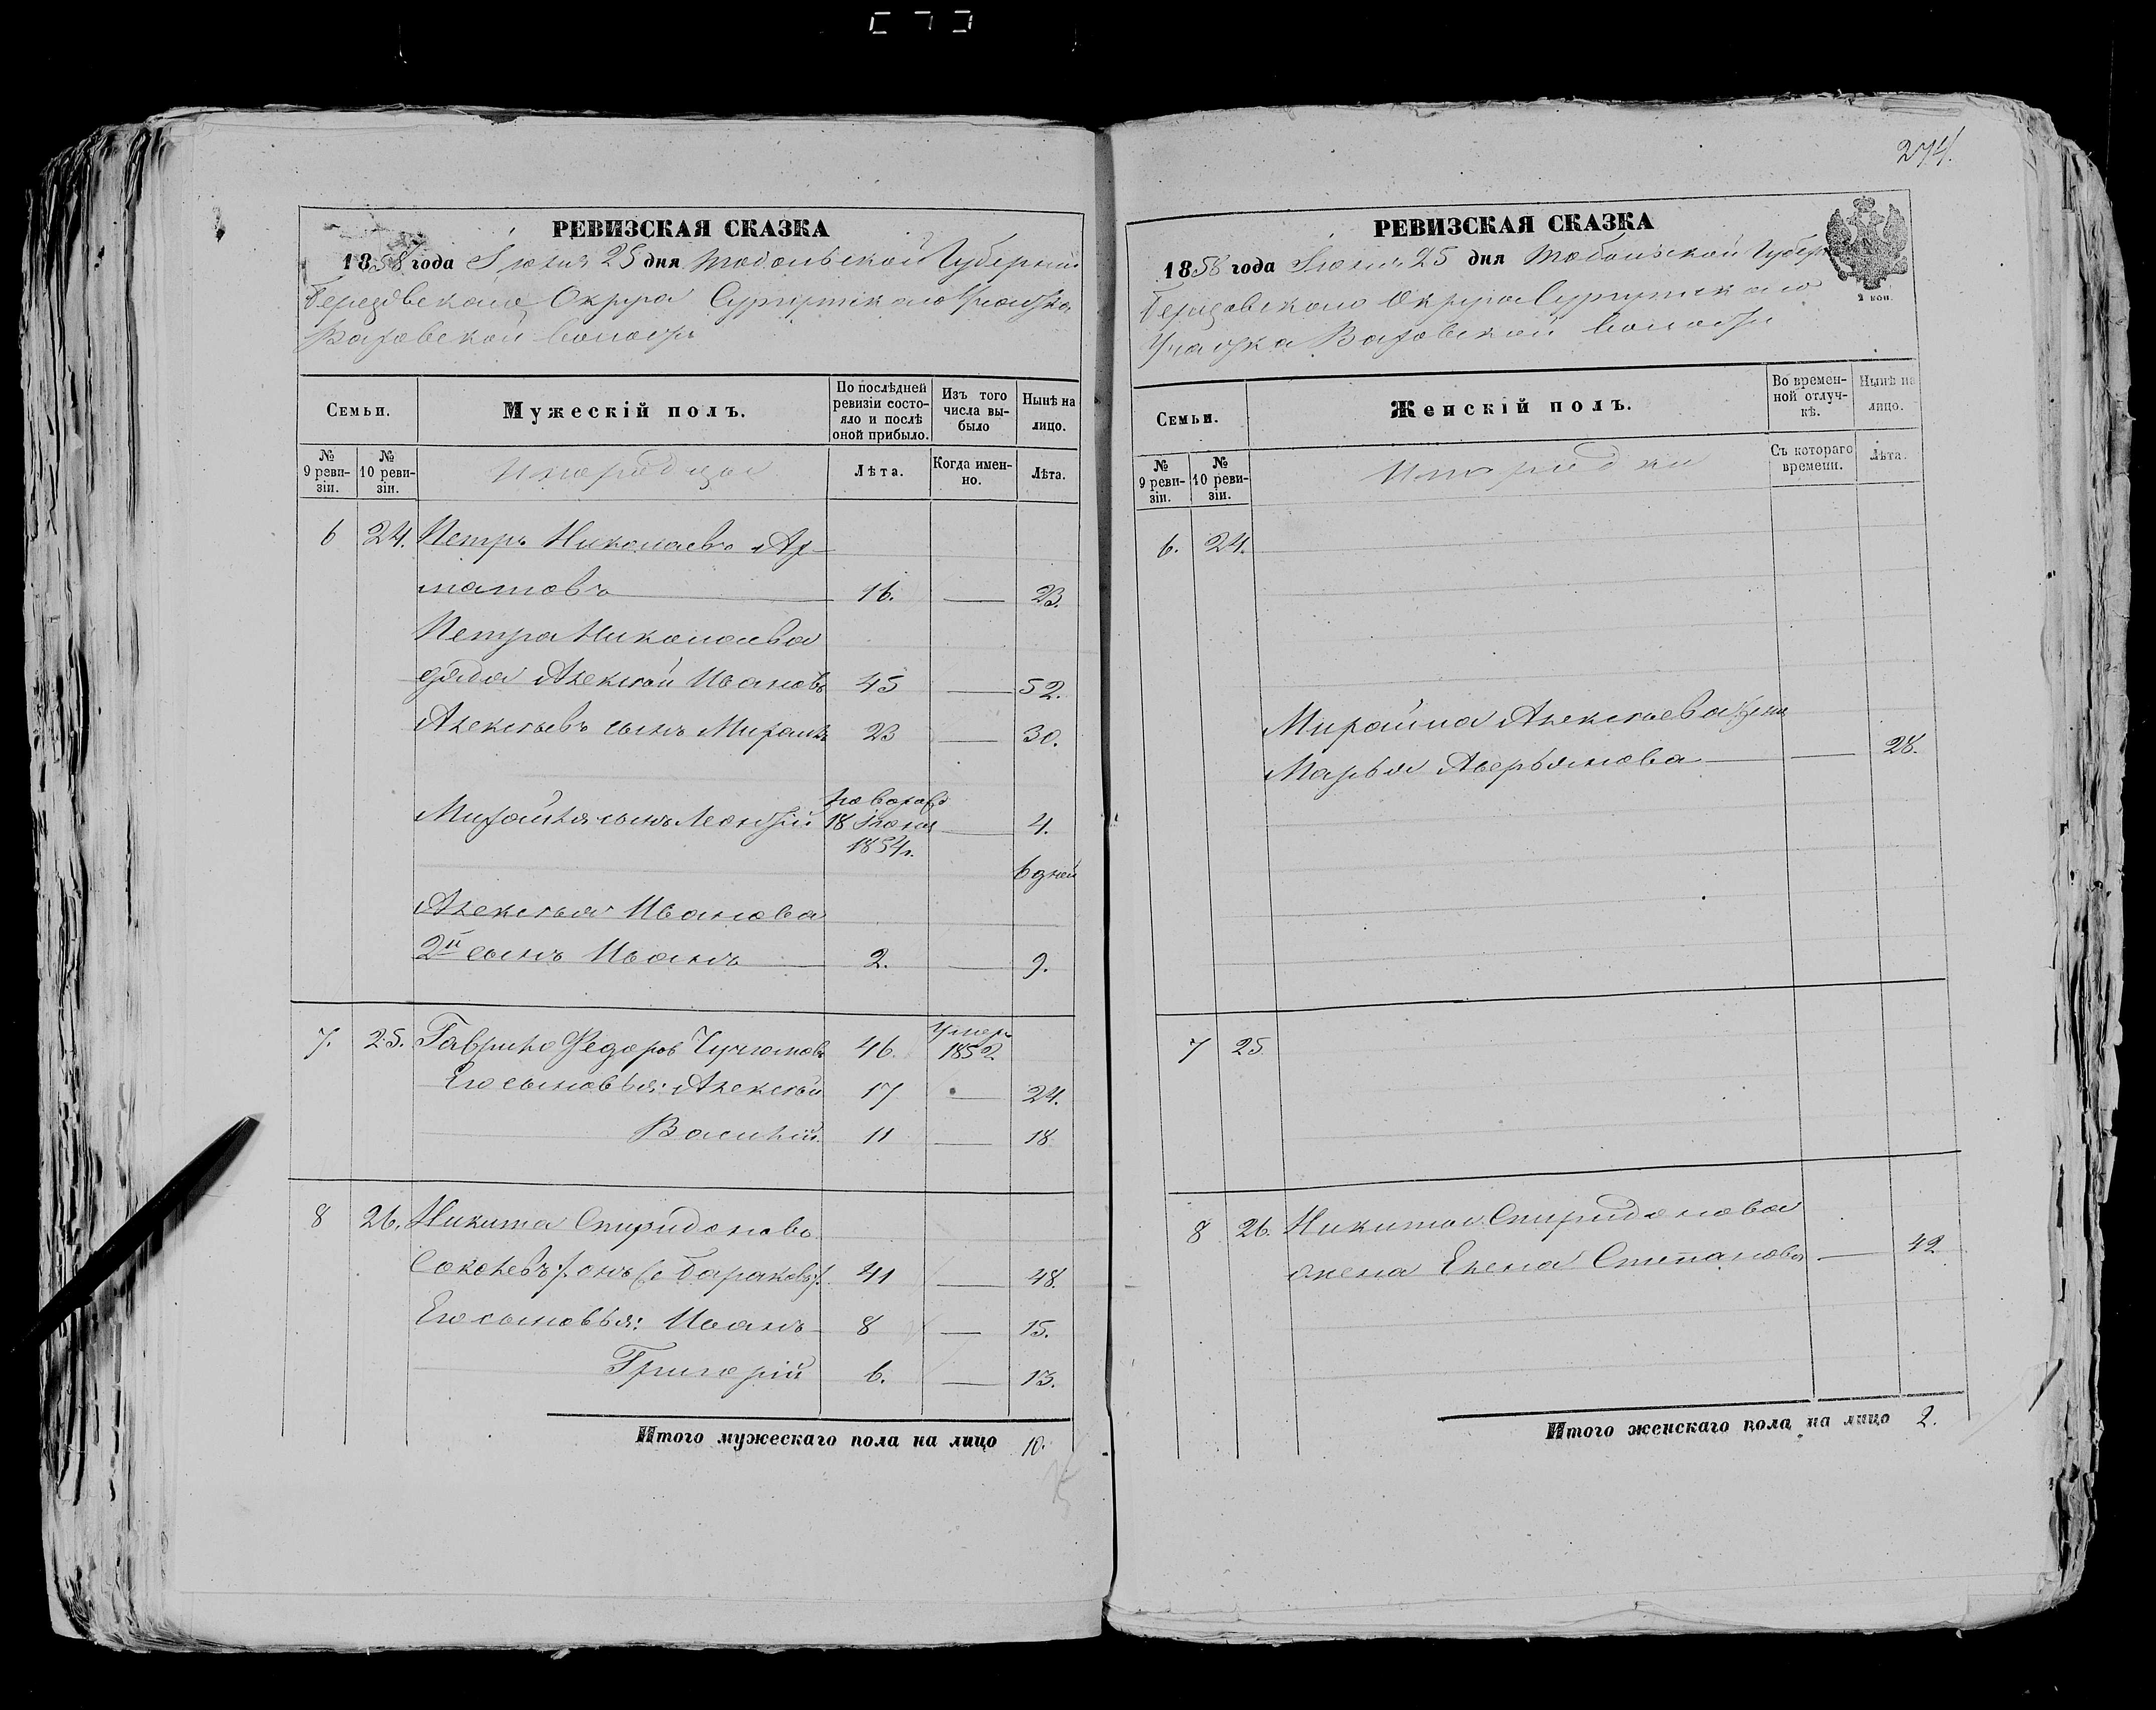 274.
РЕВИЗСКАЯ СКАЗКА
1858 года Іюня 25 дня Тобольской Губерніи
Березовскаго Округа Сургутскаго Участка
Ваховской волости
Семьи.
Мужескій полъ.
По послѣдней ревизіи состо-
яло и послѣ
оной прибыло.
Изъ того
числа вы-
было
Нынѣ на
лицо.
№
9 реви-
зіи.
№
10 реви-
зіи.
Инородцы
Лѣта.
Когда имен-
но.
Лѣта.
6 24. Петръ Николаевъ
16. — 23.
Петра Николаева
дядя Алексѣй Ивановъ 45 — 52.
Алексѣевъ сынъ Михаилъ 23 — 30.
Михайла сынъ Леонтій 18 Іюня 1854г. — 4.
6 дней
Алексѣя Иванова
2й сынъ Иванъ — 2. — 9.
7. 25. Гаврило Федоровъ 46. умеръ 1852
Его сыновья: Алексѣй 17 — 24.
Василій 11 — 18
8 26. Никита Спиридоновъ
онъ 41 — 48.
Его сыновья: Иванъ 8 — 15.
Григорій 6. — 13.
Итого мужескаго пола на лицо 10.
РЕВИЗСКАЯ СКАЗКА
1858 года Іюня 25 дня Тобольской Губерніи
2 коп.
Березовскаго Округа Сургутскаго
Участка Ваховской волости
Семьи.
Женскій полъ.
Во времен-
ной отлуч-
кѣ.
Нынѣ на
лицо.
№
9 реви-
зіи.
№
10 реви-
зіи.
Инородки
Съ котораго
времени.
Лѣта.
6. 24.
Михайла Алексѣева жена
Марья Аверьянова — — 28.
7 25
8 26. Никиты Спиридонова
жена Елена Степанова — 42
Итого женскаго пола на лицо 2.